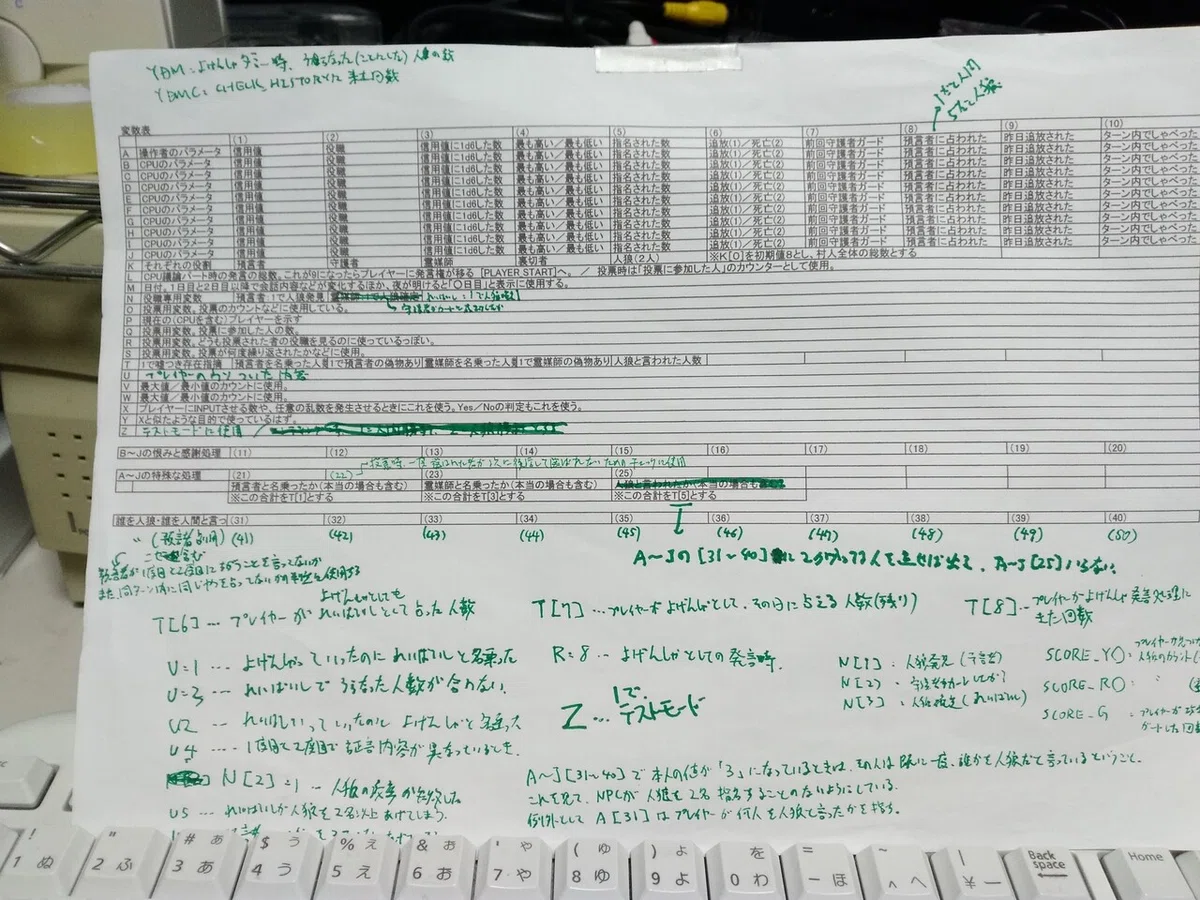 YDM:よげんしゃダミー時、うらなった(ことにした)人狼の数
YDMC:CHECK_HISTORYに来た回数
1だと人間
5だと人狼
変数表
(1) (2) (3) (4) (5) (6) (7) (8) (9) (10)
A 操作者のパラメータ 信用値 役職 信用値に1d6した数 最も高い/最も低い 指名された数 追放(1)/死亡(2) 前回守護者ガード 預言者に占われた 昨日追放された ターン内でしゃべった
B CPUのパラメータ 信用値 役職 信用値に1d6した数 最も高い/最も低い 指名された数 追放(1)/死亡(2) 前回守護者ガード 預言者に占われた 昨日追放された ターン内でしゃべった
C CPUのパラメータ 信用値 役職 信用値に1d6した数 最も高い/最も低い 指名された数 追放(1)/死亡(2) 前回守護者ガード 預言者に占われた 昨日追放された ターン内でしゃべった
D CPUのパラメータ 信用値 役職 信用値に1d6した数 最も高い/最も低い 指名された数 追放(1)/死亡(2) 前回守護者ガード 預言者に占われた 昨日追放された ターン内でしゃべった
E CPUのパラメータ 信用値 役職 信用値に1d6した数 最も高い/最も低い 指名された数 追放(1)/死亡(2) 前回守護者ガード 預言者に占われた 昨日追放された ターン内でしゃべった
F CPUのパラメータ 信用値 役職 信用値に1d6した数 最も高い/最も低い 指名された数 追放(1)/死亡(2) 前回守護者ガード 預言者に占われた 昨日追放された ターン内でしゃべった
G CPUのパラメータ 信用値 役職 信用値に1d6した数 最も高い/最も低い 指名された数 追放(1)/死亡(2) 前回守護者ガード 預言者に占われた 昨日追放された ターン内でしゃべった
H CPUのパラメータ 信用値 役職 信用値に1d6した数 最も高い/最も低い 指名された数 追放(1)/死亡(2) 前回守護者ガード 預言者に占われた 昨日追放された ターン内でしゃべった
I CPUのパラメータ 信用値 役職 信用値に1d6した数 最も高い/最も低い 指名された数 追放(1)/死亡(2) 前回守護者ガード 預言者に占われた 昨日追放された ターン内でしゃべった
J CPUのパラメータ 信用値 役職 信用値に1d6した数 最も高い/最も低い 指名された数 追放(1)/死亡(2) 前回守護者ガード 預言者に占われた 昨日追放された ターン内でしゃべった
K それぞれの役割 預言者 守護者 霊媒師 裏切者 人狼(2人) ※K[0]を初期値8とし、村人全体の総数とする
L CPU議論パート時の発言の総数。これが9になったらプレイヤーに発言権が移る [PLAYER START]へ。 / 投票時は「投票に参加した人」のカウンターとして使用。
M 日付。1日目と2日目以降で会話内容などが変化するほか、夜が明けると「〇日目」と表示に使用する。
N 役職専用変数 預言者:1で人狼発見 れいばいし:1で人狼検定
守護者がガードに成功したか
O 投票用変数。投票のカウントなどに使用している。
P 現在の(CPUを含む)プレイヤーを示す
Q 投票用変数。投票に参加した人の数。
R 投票用変数。どうも投票された者の役職を見るのに使っているっぽい。
S 投票用変数。投票が何度繰り返されたかなどに使用。
T 1で嘘つき存在指摘 預言者を名乗った人数 1で預言者の偽物あり 霊媒師を名乗った人数 1で霊媒師の偽物あり 人狼と言われた人数
U プレイヤーのウソついた内容
V 最大値/最小値のカウントに使用。
W 最大値/最小値のカウントに使用。
X プレイヤーにINPUTさせる数や、任意の乱数を発生させるときにこれを使う。Yes/Noの判定もこれを使う。
Y Xと似たような目的で使っているはず。
Z テストモードに使用
B〜Jの恨みと感謝処理 (11) (12) (13) (14) (15) (16) (17) (18) (19) (20)
A〜Jの特殊な処理 (21) (22) (23) (25)
預言者と名乗ったか(本当の場合も含む) 霊媒師と名乗ったか(本当の場合も含む) 人狼と言われたか(本当の場合も含む)
※この合計をT[1]とする ※この合計をT[3]とする ※この合計をT[5]とする
誰を人狼・誰を人間と言っ (31) (32) (33) (34) (35) (36) (37) (38) (39) (40)
〃 (預言者用) (41) (42) (43) (44) (45) (46) (47) (48) (49) (50)
A〜Jの[31〜40]に2が入ってる人を足せば出る、A〜J[25]いらない
預言者が1度目と2度目にちがうことを言ってないか
また、同ターン内に同じやつを占ってないか確認に使用する
よげんしゃとしても
T[6]…プレイヤーがれいばいしとして占った人数
T[7]…プレイヤーがよげんしゃとして、その日に占える人数(残り)
T[8]…プレイヤーがよげんしゃ発言処理に
きた回数
U=1 … よげんしゃっていったのにれいばいしと名乗った
U=3 … れいばいしでうらなった人数が合わない。
U2 … れいばいしっていったのによげんしゃと名乗った
U4 … 1度目と2度目で証言内容が異なっているとき。
N[2]=1 … 人狼の襲撃が失敗した
U5 … れいばいしが人狼を2名以上あげてしまう。
R=8 … よげんしゃとしての発言時。
Z … 1でテストモード
N[1]:人狼発見(預言者)
N[2]:守護者ガードしたか?
N[3]:人狼検定(れいばいし)
SCORE_YO:プレイヤーが見つけた
人狼のカウント
SCORE_RO: 〃
SCORE_G:プレイヤーが
ガードした回数
A〜J[31〜40]で本人の値が「3」になっているときは、その人は既に一度、誰かを人狼だと言っているということ。
これを見て、NPCが人狼を2名指名することのないようにしている。
例外としてA[31]はプレイヤーが何人を人狼と言ったかを指す。
! " # あ $ う % え & お ' や ( ゆ ) よ を = ~ | Back space Home
1 ぬ 2 ふ 3 あ 4 う 5 え 6 お 7 や 8 ゆ 9 よ 0 わ - ほ ^ へ ¥ ー